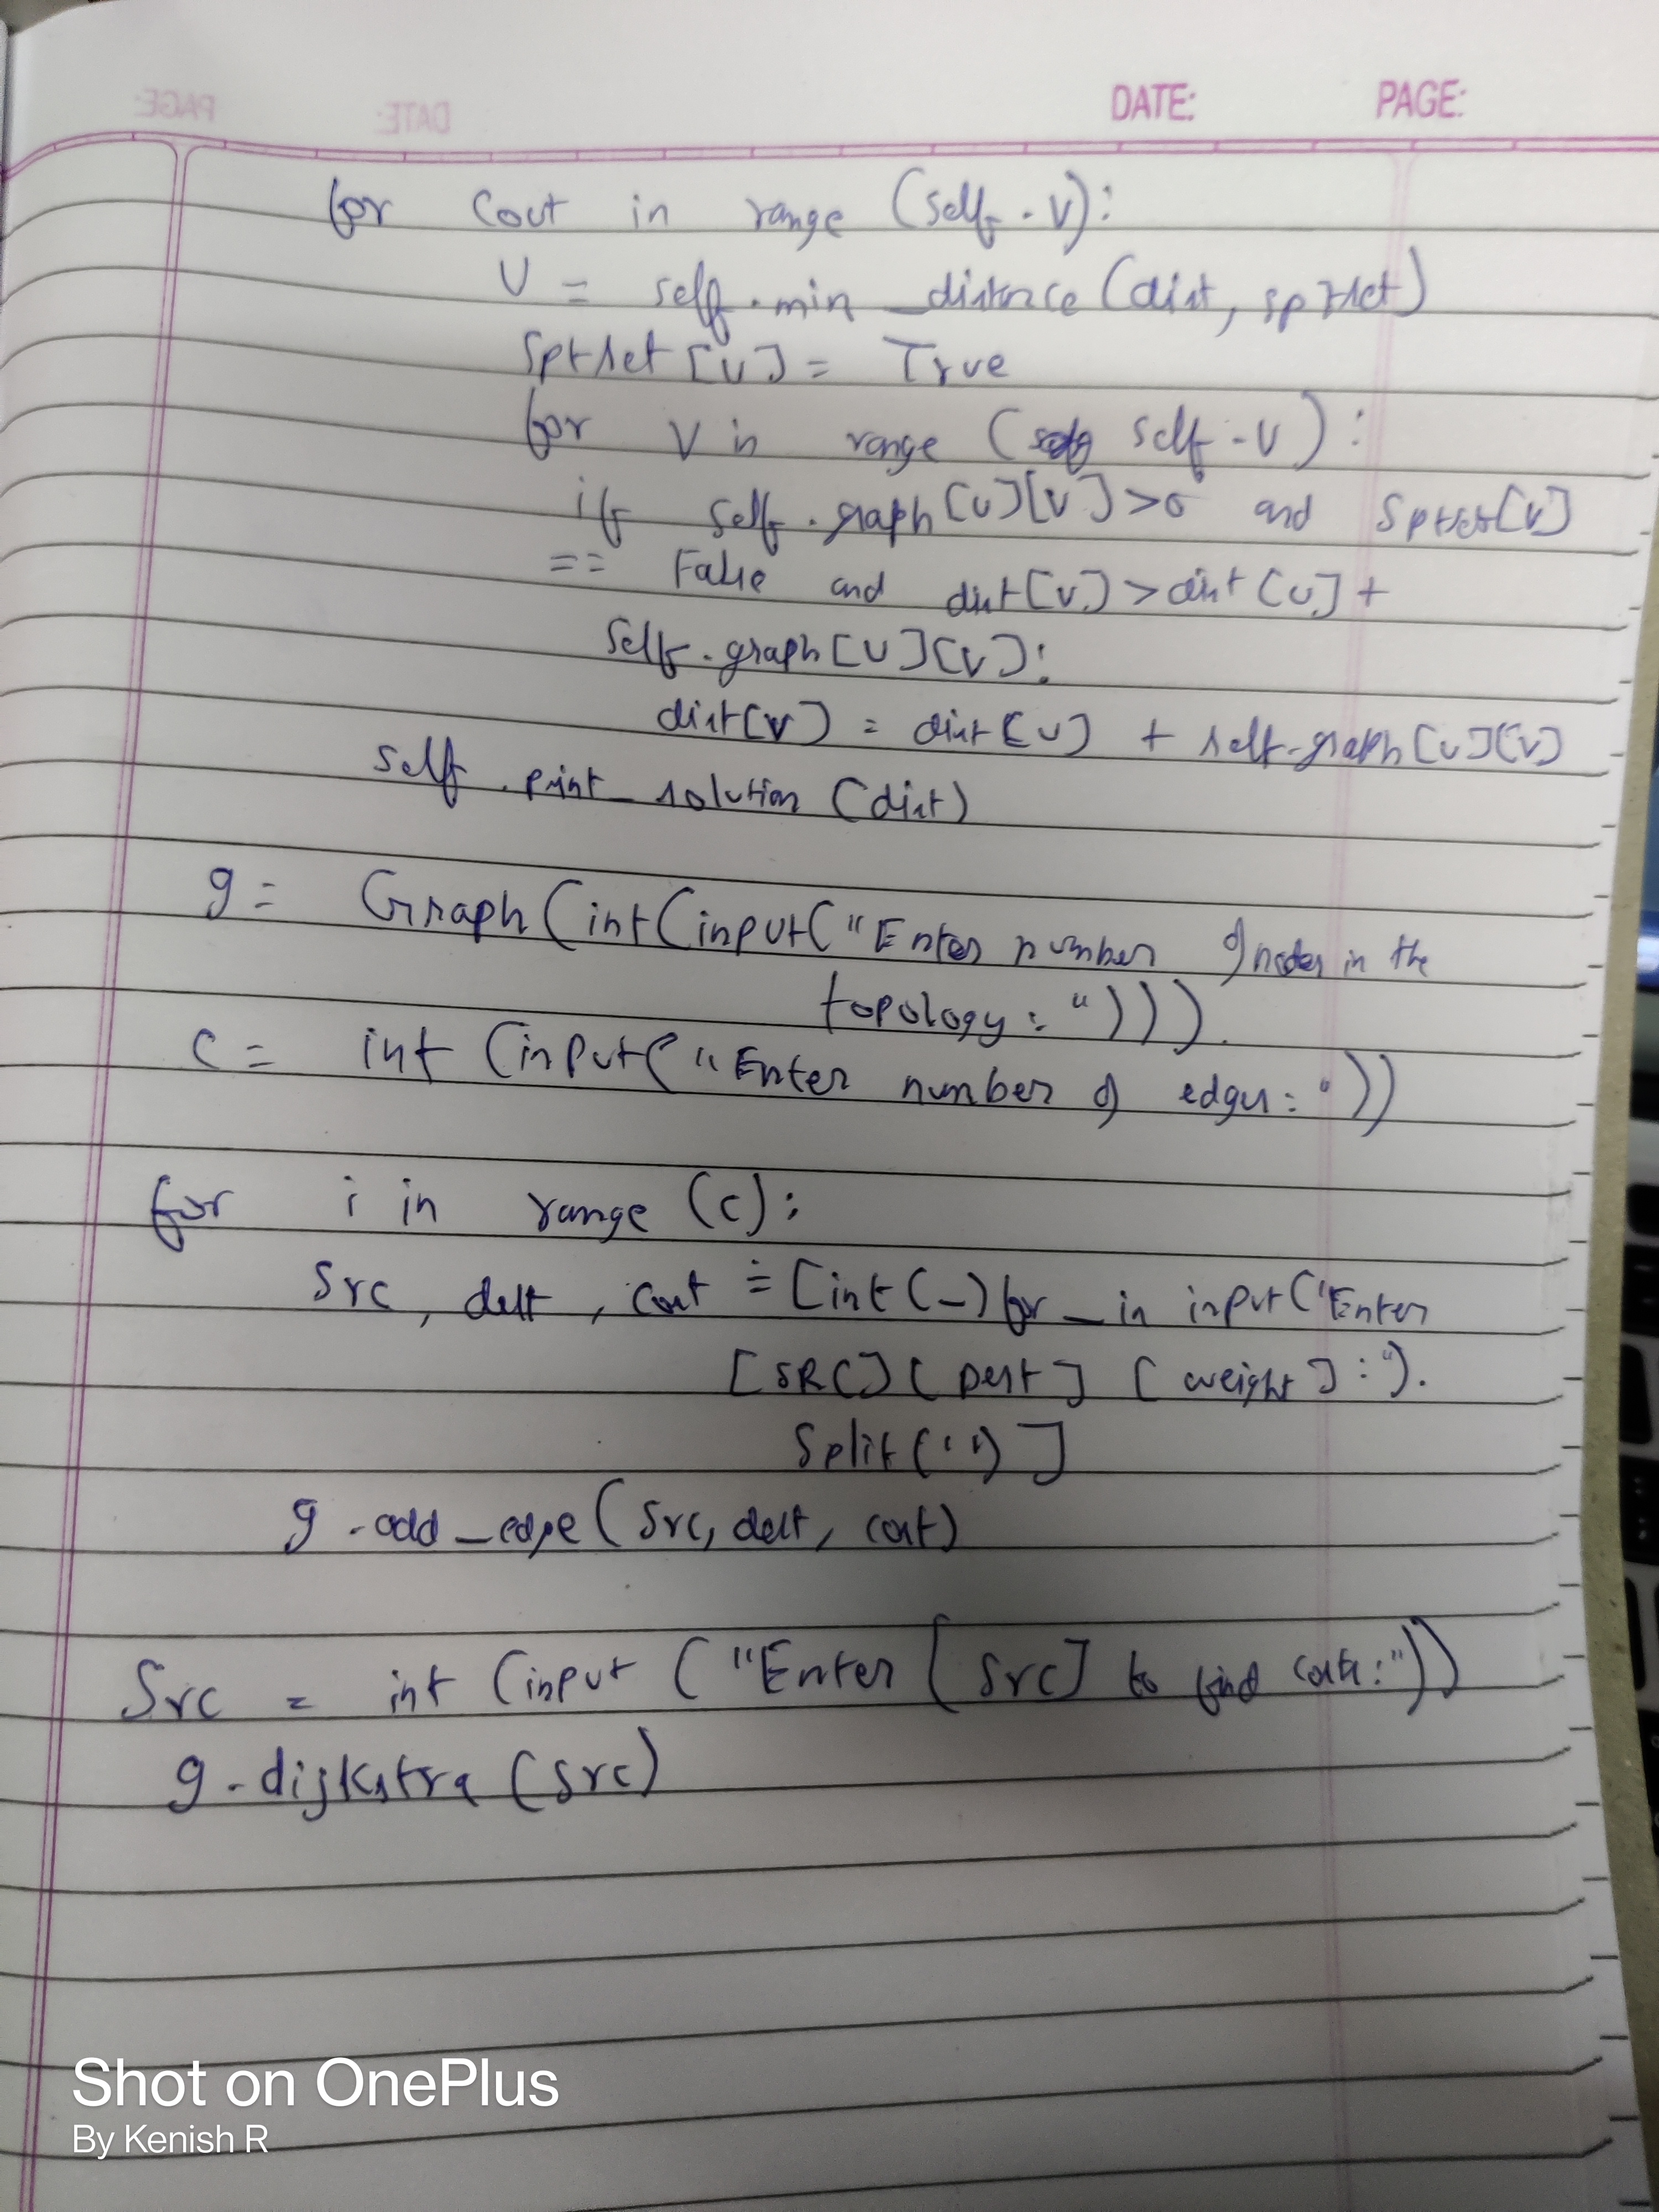 PAGE: DATE: DATE: PAGE:
for cout in range (self.V):
U = self.min_distance(dist, sptset)
Sptset[U] = True
for V in range (self.V):
if self.graph[U][V]>0 and Sptset[V]
== False and dist[V]>dist[U]+
Self.graph[U][V]:
dist[V] = dist[U] + self.graph[U][V]
self.print_solution(dist)
g= Graph(int(input("Enter number of nodes in the
topology: "))).
c= int (input("Enter number of edges: "))
for i in range (c):
Src, delt, cost = [int(_) for _ in input("Enter
[SRC][Dest] [weight]:").
Split(' ')]
g.add_edge(Src, delt, cost)
Src = int (input ("Enter [Src] to find costs:"))
g.dijkstra(src)
Shot on OnePlus
By Kenish R